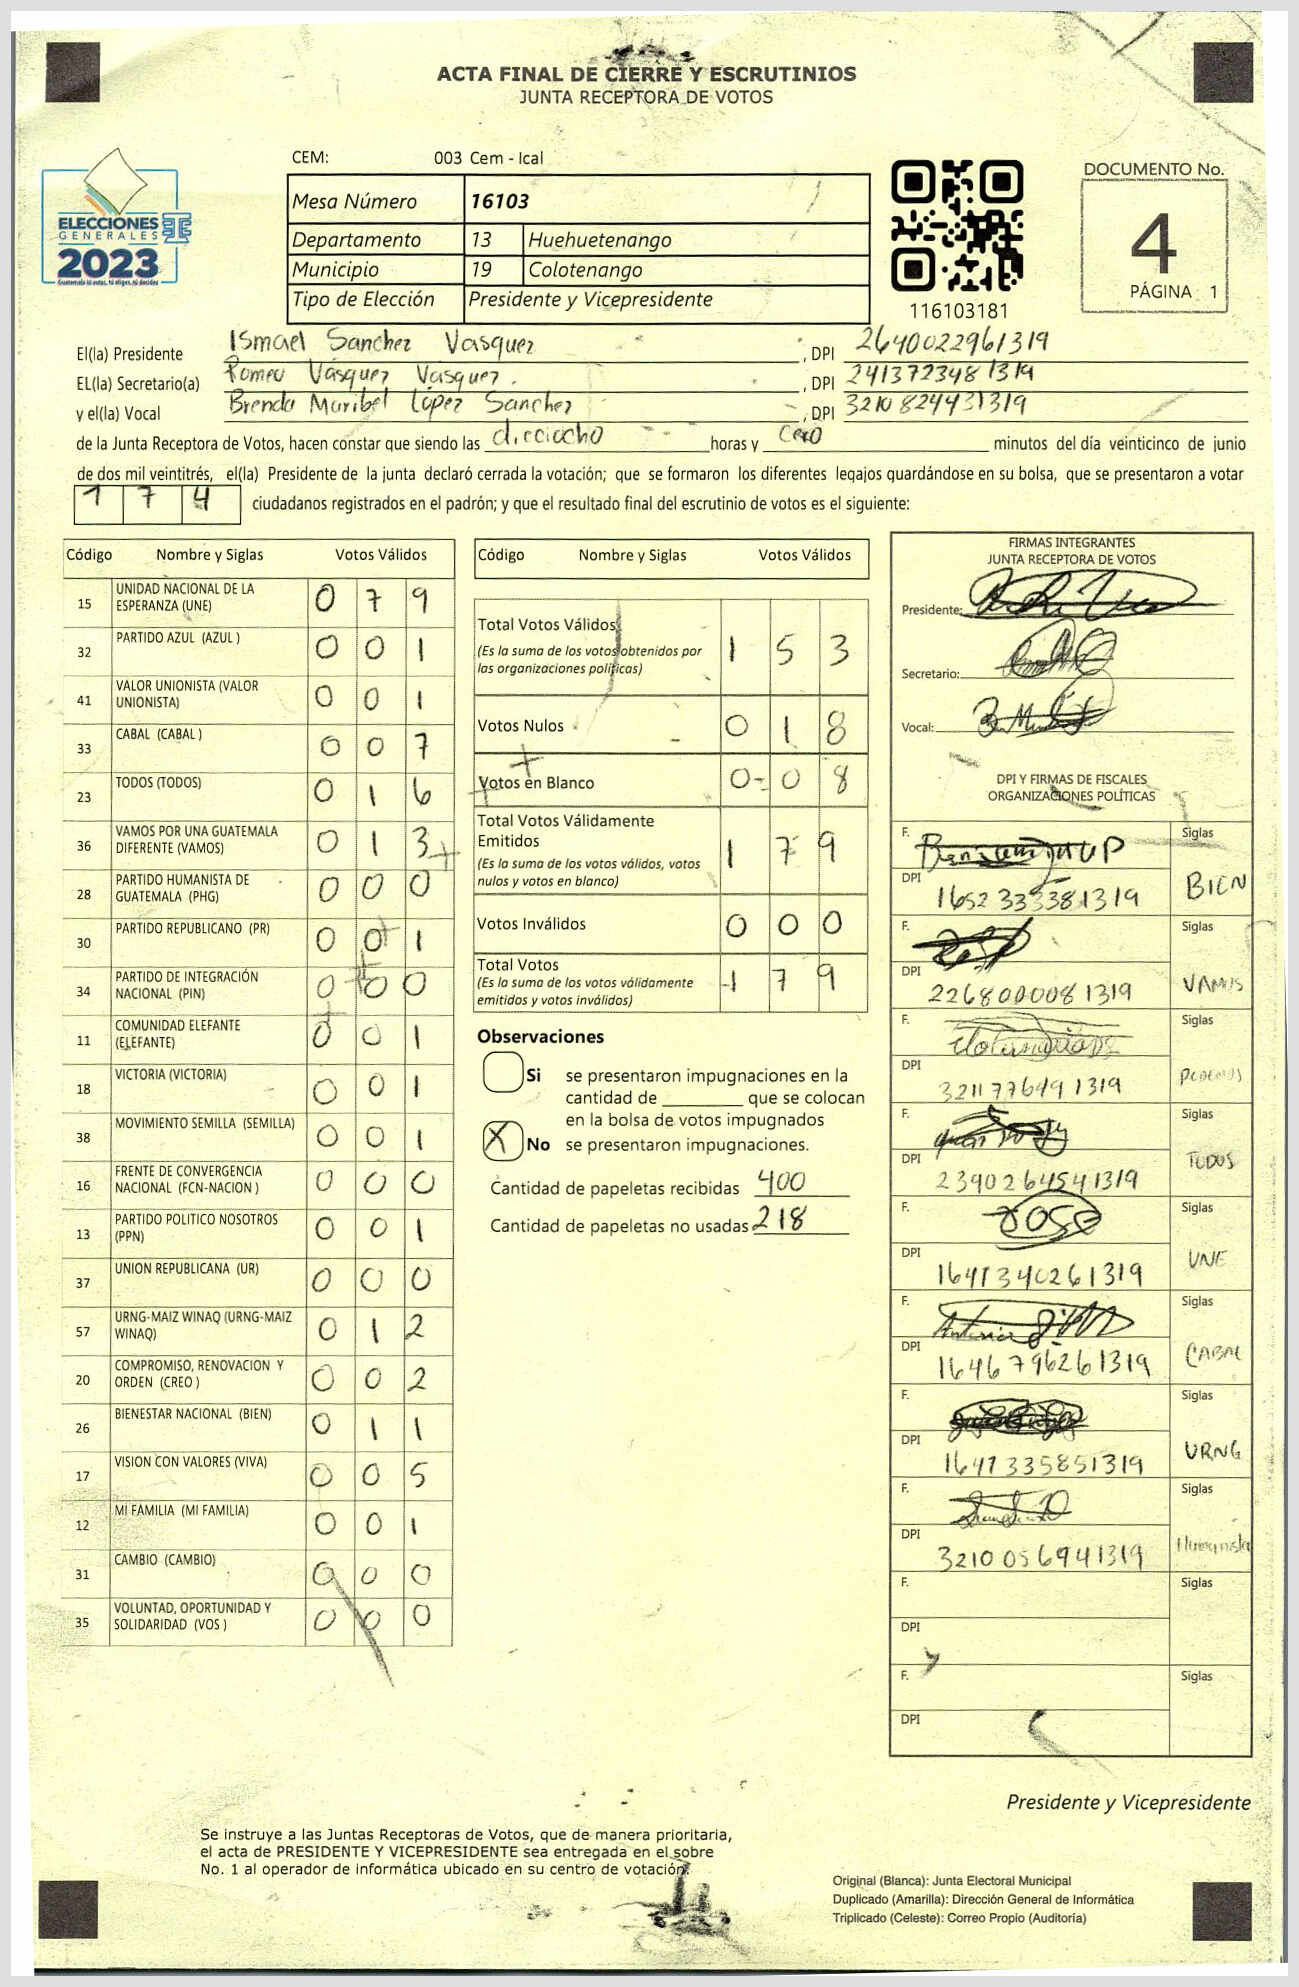 ACTA FINAL DE CIERRE Y ESCRUTINIOS
JUNTA RECEPTORA DE VOTOS
ELECCIONES
GENERALES
2023
Guatemala tú votas, tú eliges, tú decides
CEM: 003 Cem - Ical
Mesa Número 16103
Departamento 13 Huehuetenango
Municipio 19 Colotenango
Tipo de Elección Presidente y Vicepresidente
116103181
DOCUMENTO No.
4
PÁGINA 1
El(la) Presidente Ismael Sanchez Vasquez , DPI 2640022961319
EL(la) Secretario(a) Romeo Vásquez Vasquez , DPI 2413723481319
y el(la) Vocal Brenda Maribel López Sanchez , DPI 3210824431319
de la Junta Receptora de Votos, hacen constar que siendo las dieciocho horas y cero minutos del día veinticinco de junio
de dos mil veintitrés, el(la) Presidente de la junta declaró cerrada la votación; que se formaron los diferentes legajos guardándose en su bolsa, que se presentaron a votar
1 7 4 ciudadanos registrados en el padrón; y que el resultado final del escrutinio de votos es el siguiente:
Código Nombre y Siglas Votos Válidos
15 UNIDAD NACIONAL DE LA ESPERANZA (UNE) 0 7 9
32 PARTIDO AZUL (AZUL ) 0 0 1
41 VALOR UNIONISTA (VALOR UNIONISTA) 0 0 1
33 CABAL (CABAL ) 0 0 7
23 TODOS (TODOS) 0 1 6
36 VAMOS POR UNA GUATEMALA DIFERENTE (VAMOS) 0 1 3
28 PARTIDO HUMANISTA DE GUATEMALA (PHG) 0 0 0
30 PARTIDO REPUBLICANO (PR) 0 0 1
34 PARTIDO DE INTEGRACIÓN NACIONAL (PIN) 0 0 0
11 COMUNIDAD ELEFANTE (ELEFANTE) 0 0 1
18 VICTORIA (VICTORIA) 0 0 1
38 MOVIMIENTO SEMILLA (SEMILLA) 0 0 1
16 FRENTE DE CONVERGENCIA NACIONAL (FCN-NACION ) 0 0 0
13 PARTIDO POLITICO NOSOTROS (PPN) 0 0 1
37 UNION REPUBLICANA (UR) 0 0 0
57 URNG-MAIZ WINAQ (URNG-MAIZ WINAQ) 0 1 2
20 COMPROMISO, RENOVACION Y ORDEN (CREO ) 0 0 2
26 BIENESTAR NACIONAL (BIEN) 0 1 1
17 VISION CON VALORES (VIVA) 0 0 5
12 MI FAMILIA (MI FAMILIA) 0 0 1
31 CAMBIO (CAMBIO) 0 0 0
35 VOLUNTAD, OPORTUNIDAD Y SOLIDARIDAD (VOS ) 0 0 0
Código Nombre y Siglas Votos Válidos
Total Votos Válidos 1 5 3
(Es la suma de los votos obtenidos por
las organizaciones políticas)
Votos Nulos 0 1 8
Votos en Blanco 0 0 8
Total Votos Válidamente
Emitidos 1 7 9
(Es la suma de los votos válidos, votos
nulos y votos en blanco)
Votos Inválidos 0 0 0
Total Votos 1 7 9
(Es la suma de los votos válidamente
emitidos y votos inválidos)
Observaciones
Si se presentaron impugnaciones en la
cantidad de ________ que se colocan
en la bolsa de votos impugnados
X No se presentaron impugnaciones.
Cantidad de papeletas recibidas 400
Cantidad de papeletas no usadas 218
FIRMAS INTEGRANTES
JUNTA RECEPTORA DE VOTOS
Presidente:
Secretario:
Vocal:
DPI Y FIRMAS DE FISCALES
ORGANIZACIONES POLÍTICAS
F. Siglas
DPI 1652333381319 BIEN
F. Siglas
DPI 2268000081319 VAMOS
F. Siglas
DPI 3211776491319 PODEMOS
F. Siglas
DPI 2390264541319 TODOS
F. JOSE Siglas
DPI 1641340261319 UNE
F. Antonio Siglas
DPI 1646796261319 CABAL
F. Siglas
DPI 1641335851319 URNG
F. Siglas
DPI 3210056941319 Humanista
F. Siglas
DPI
F. Siglas
DPI
Presidente y Vicepresidente
Se instruye a las Juntas Receptoras de Votos, que de manera prioritaria,
el acta de PRESIDENTE Y VICEPRESIDENTE sea entregada en el sobre
No. 1 al operador de informática ubicado en su centro de votación.
Original (Blanca): Junta Electoral Municipal
Duplicado (Amarilla): Dirección General de Informática
Triplicado (Celeste): Correo Propio (Auditoría)